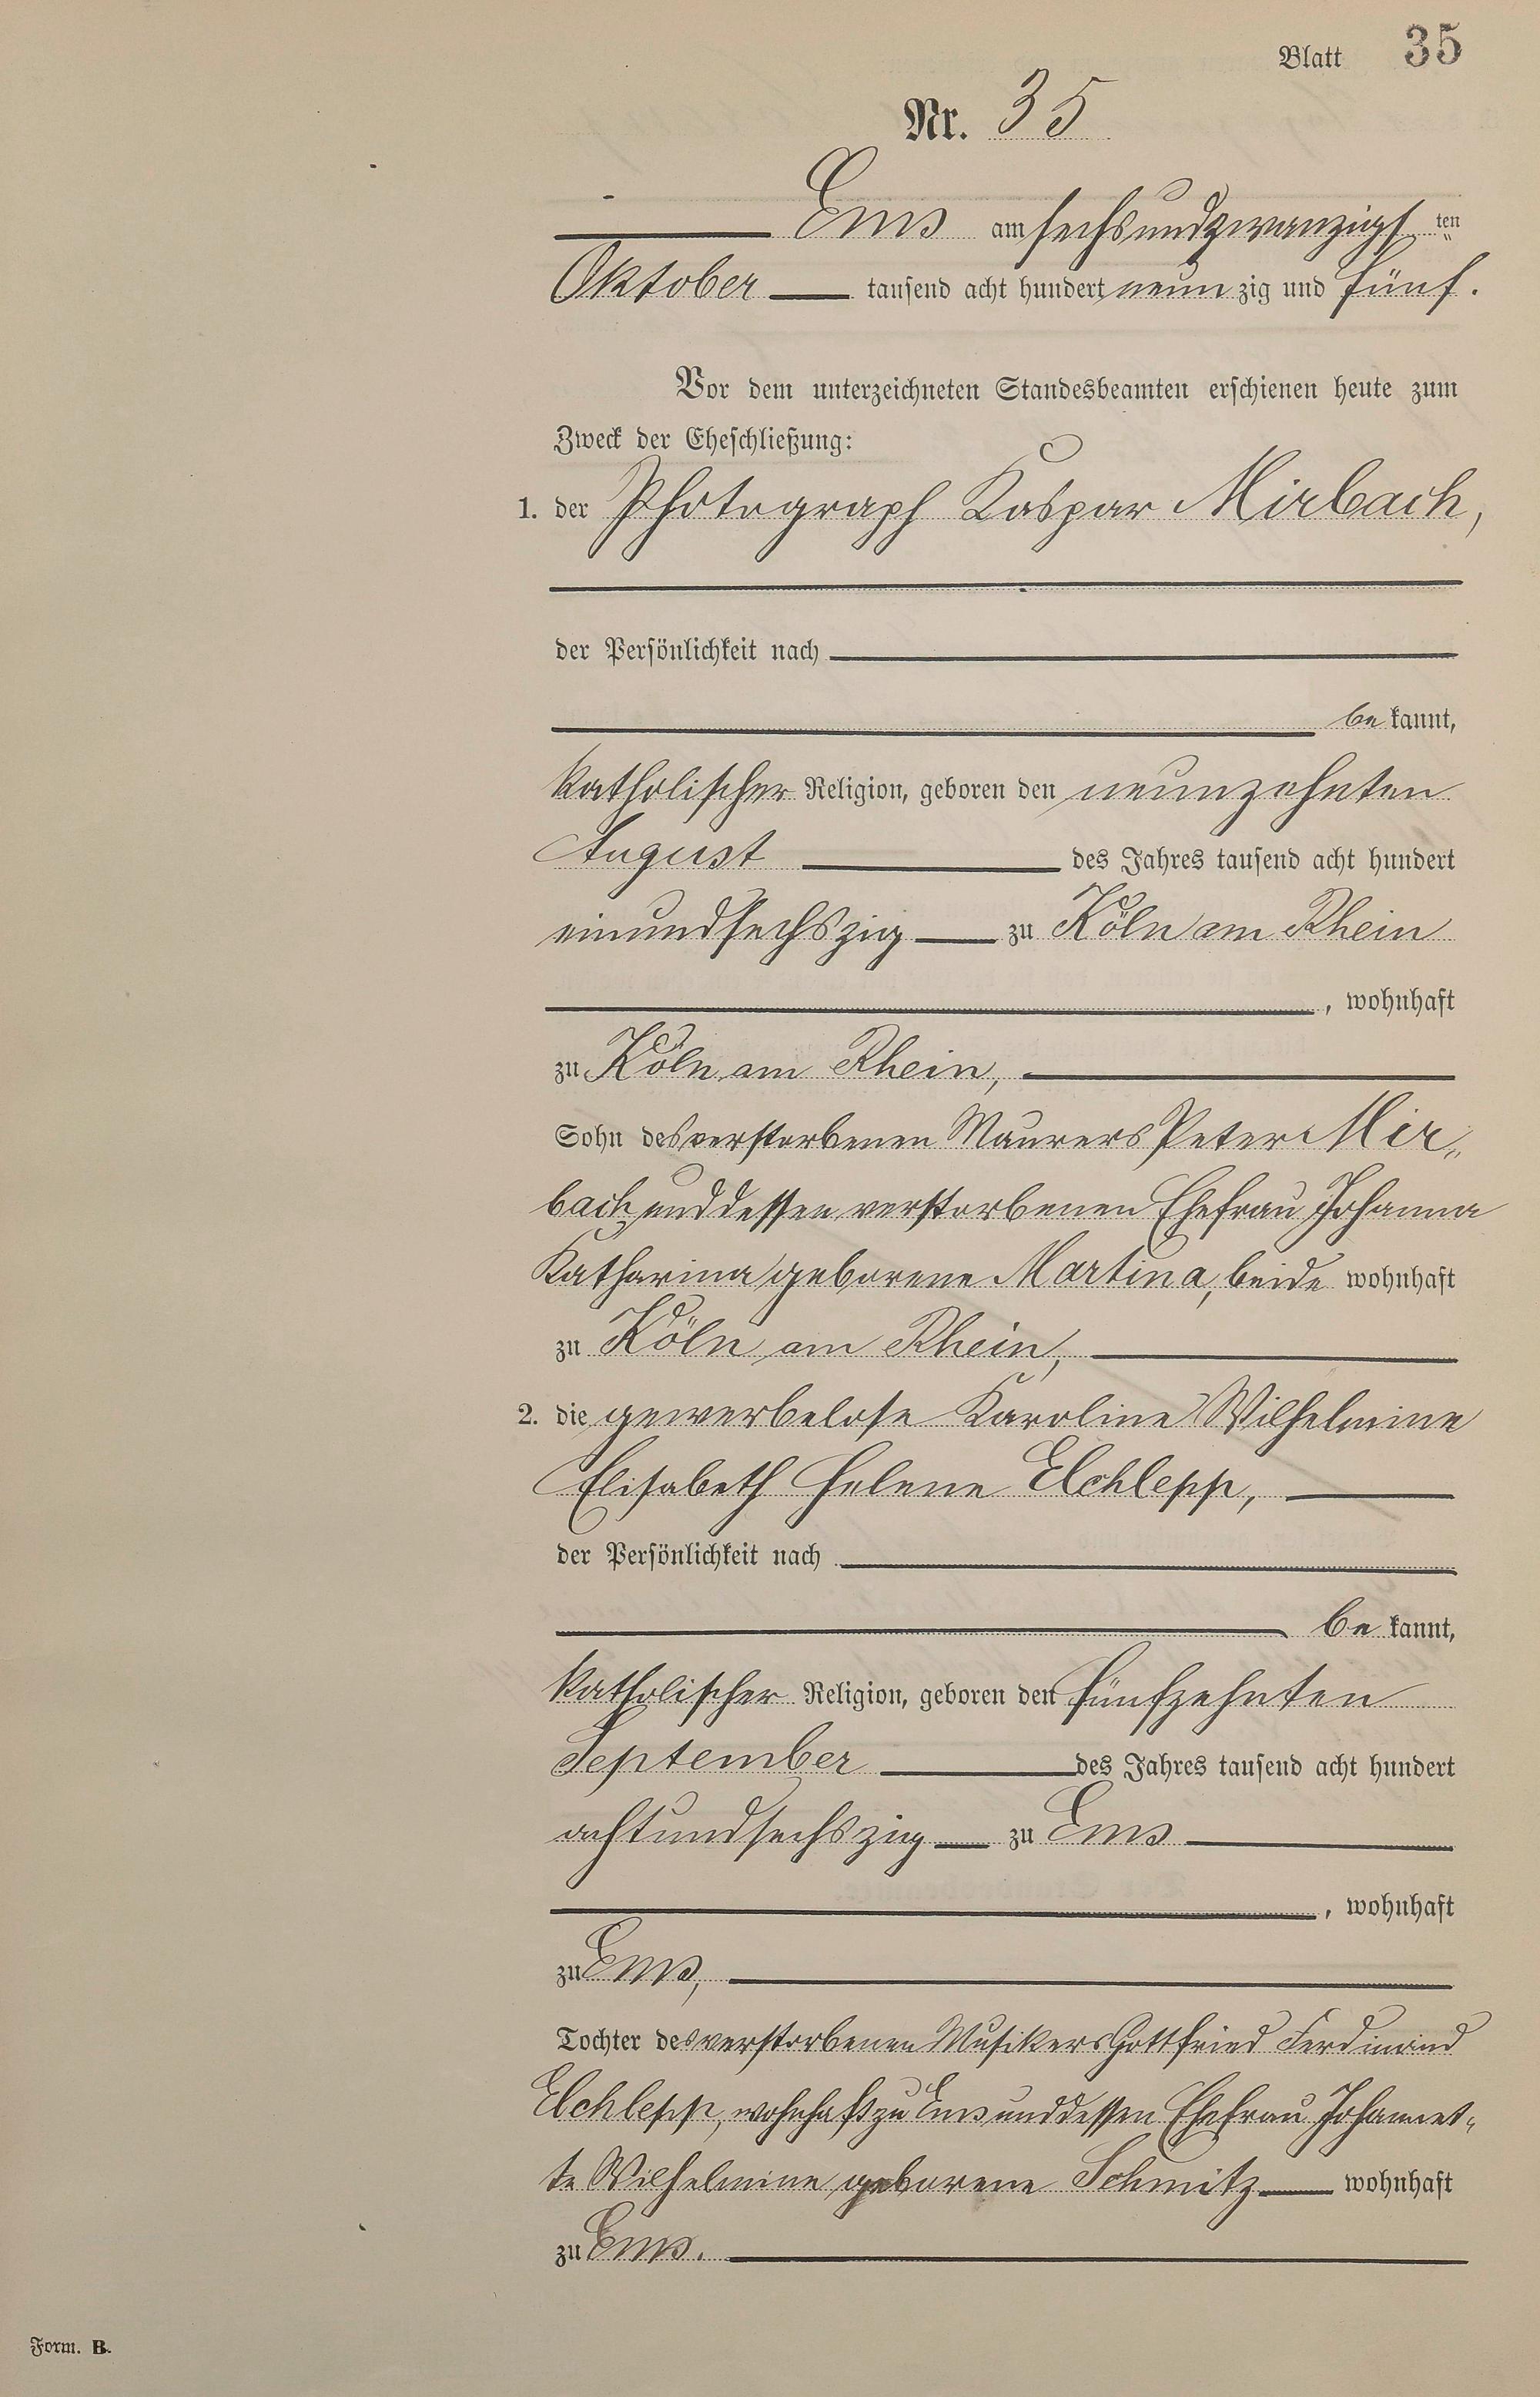 Blatt 35
Nr. 35
Ems am sechsundzwanzigs ten
Oktober tausend acht hundert neun zig und fünf.
Vor dem unterzeichneten Standesbeamten erschienen heute zum
Zweck der Eheschließung:
1. der Photograph Kaspar Mirbach,
der Persönlichkeit nach
be kannt,
katholischer Religion, geboren den neunzehnten
August des Jahres tausend acht hundert
einundsechszig zu Köln am Rhein
, wohnhaft
zu Köln am Rhein,
Sohn des verstorbenen Maurers Peter Mir„
bach und dessen verstorbenen Ehefrau Johanna
Katharina geborene Martina, beide wohnhaft
zu Köln am Rhein,
2. die gewerbelose Karoline Wilhelmine
Elisabeth Helene Elchlepp,
der Persönlichkeit nach
be kannt,
katholischer Religion, geboren den fünfzehnten
September des Jahres tausend acht hundert
achtundsechszig zu Ems
, wohnhaft
zu Ems,
Tochter des verstorbenen Musikers Gottfried Ferdinand
Elchlepp, wohnhaft zu Ems und dessen Ehefrau Johannet„
te Wilhelmine geborene Schmitz wohnhaft
zu Ems.
Form. B.